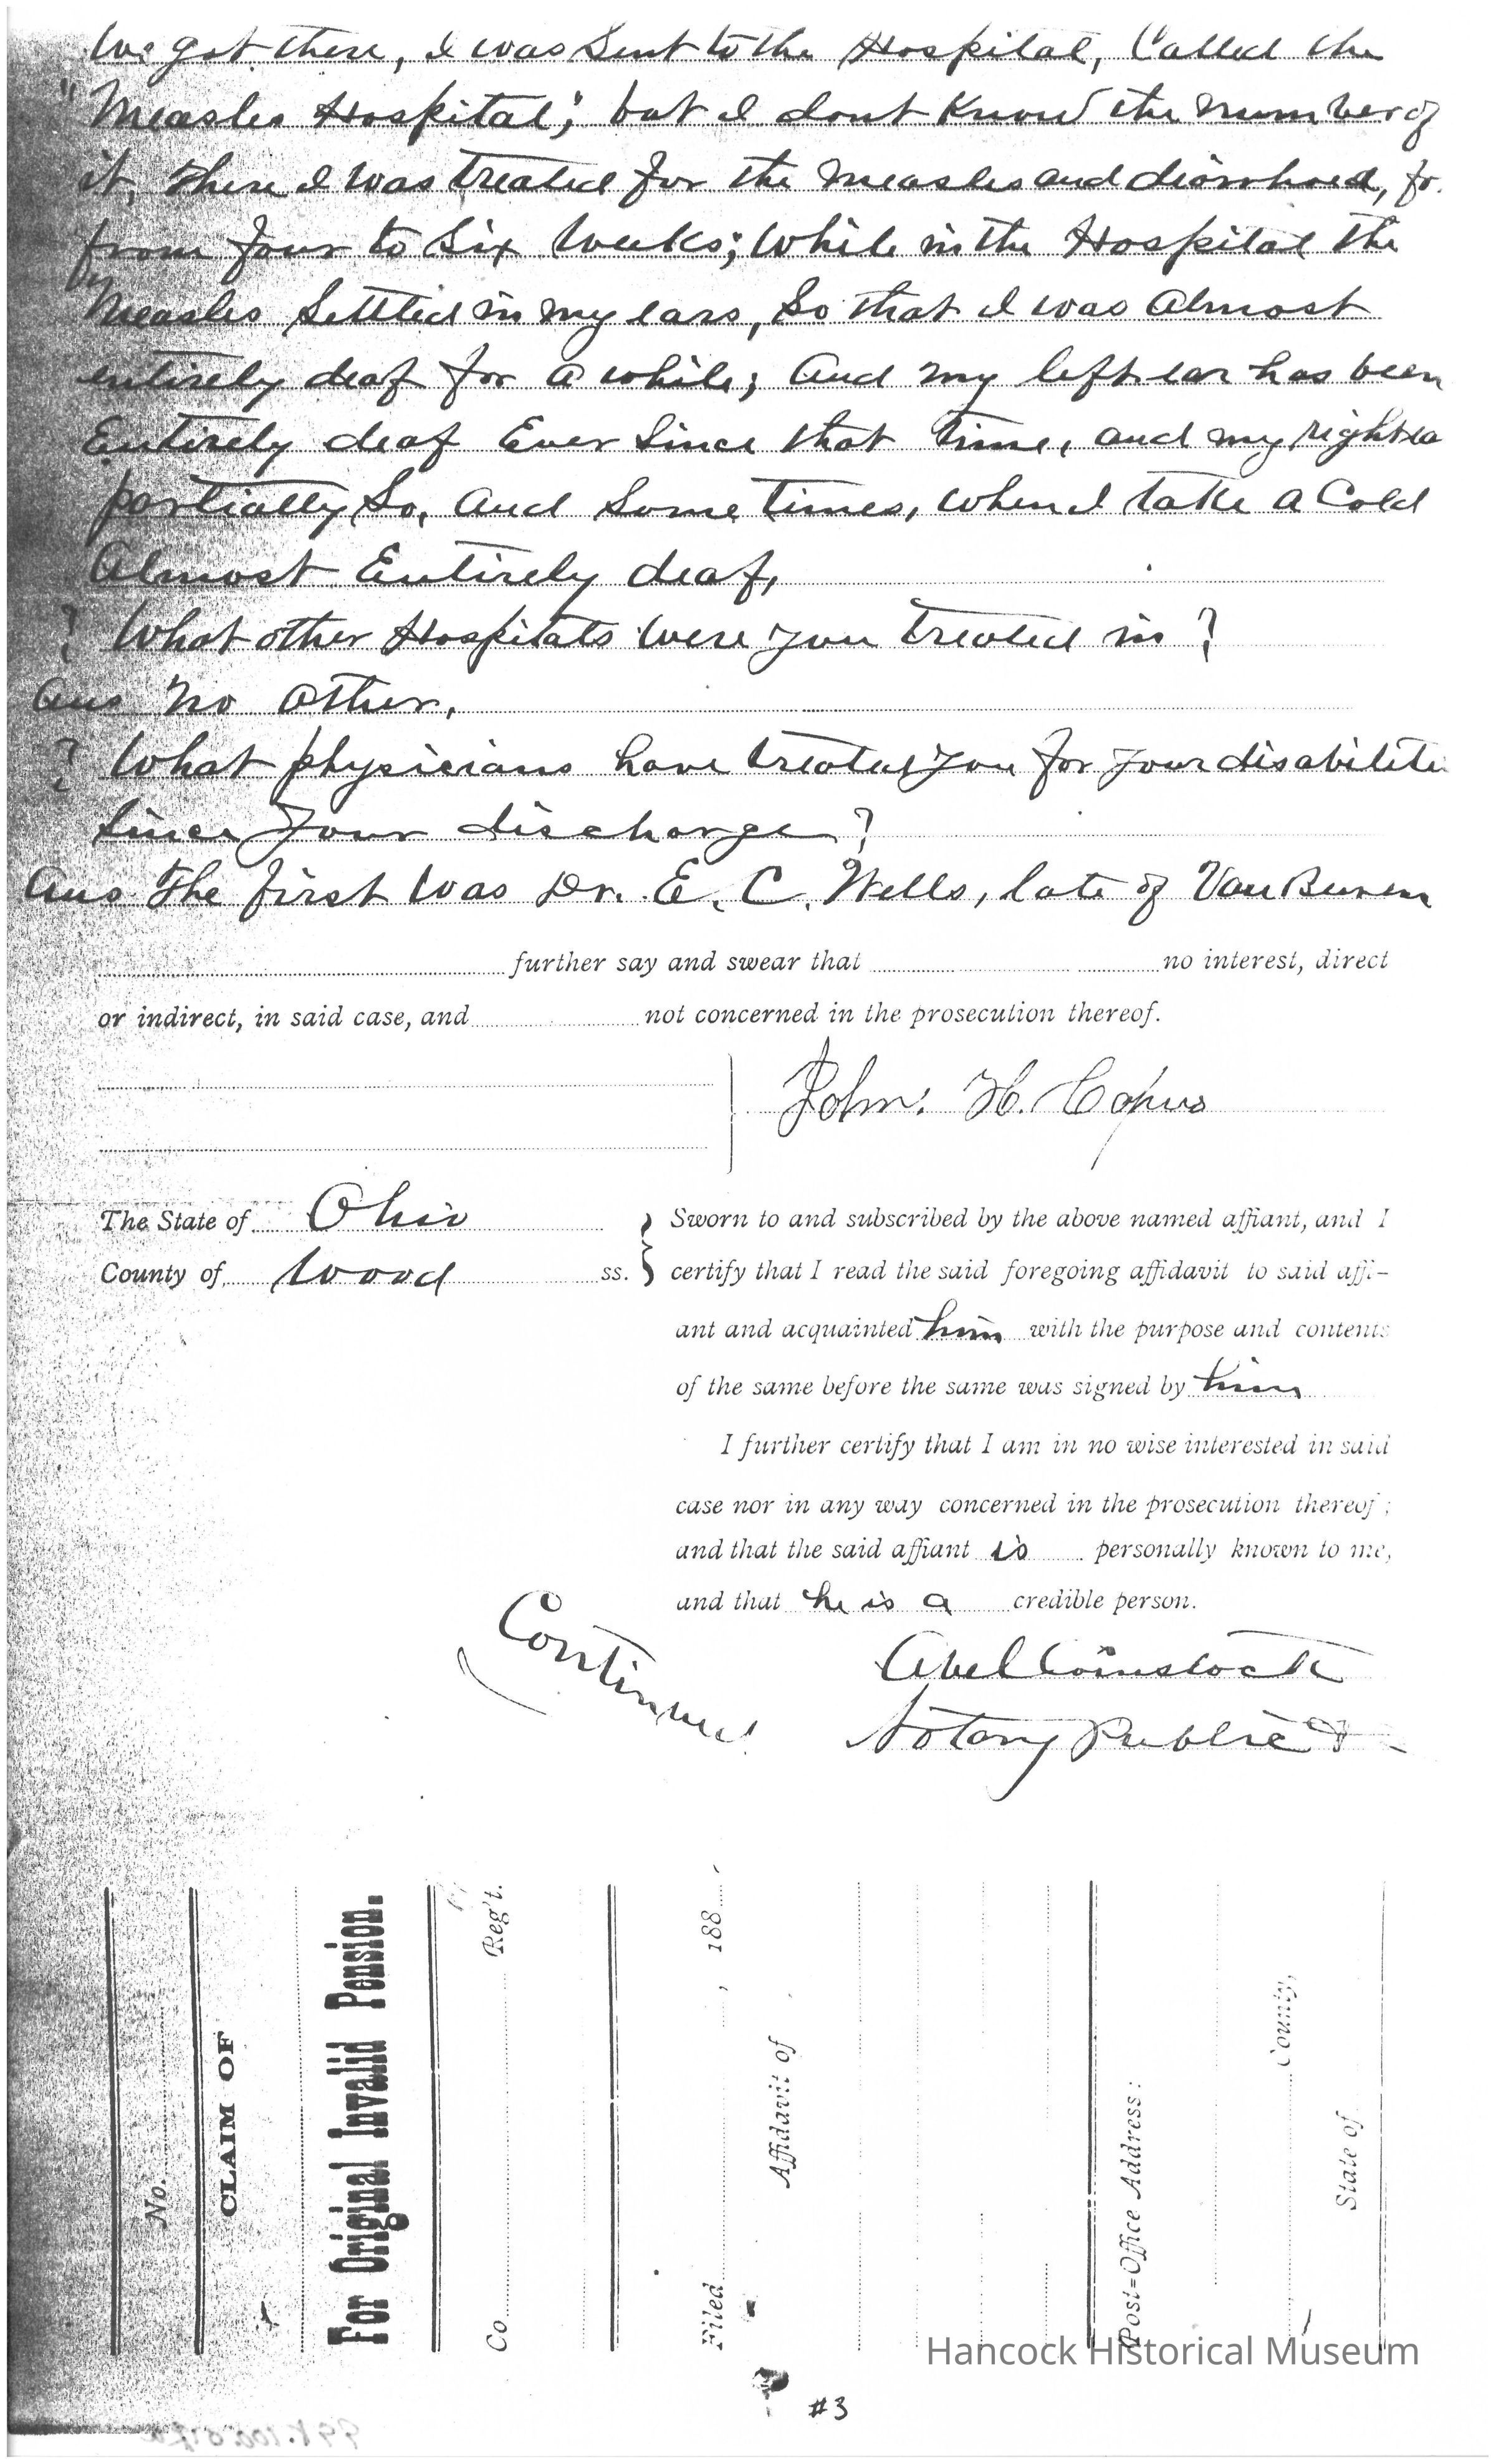 We got there, I was Sent to the Hospital, Called the
"Measles Hospital", but I dont Know the number of
it, There I was treated for the measles and diorrhoea, fr.
from four to Six Weeks; While in the Hospital the
Measles Settled in my ears, So that I was Almost
entirely deaf for a while; And my left ear has been
Entirely deaf Ever Since that time, and my right ea
partially So, And Some times, When I take a Cold
Almost Entirely deaf,
? What other Hospitals Were you treated in?
Ans No Other,
? What physicians have treated you for your disabilite
Since your discharge?
Ans The first was Dr. E. C. Wells, late of Van Buren
further say and swear that no interest, direct
or indirect, in said case, and not concerned in the prosecution thereof.
John. H. Copus
The State of Ohio
County of Wood ss.
Sworn to and subscribed by the above named affiant, and I
certify that I read the said foregoing affidavit to said affi-
ant and acquainted him with the purpose and contents
of the same before the same was signed by him
I further certify that I am in no wise interested in said
case nor in any way concerned in the prosecution thereof;
and that the said affiant is personally known to me,
and that he is a credible person.
Abel Comstock
Notary Public
Continued
No.
CLAIM OF
For Original Invalid Pension.
Co Reg't.
Filed , 188
Affidavit of
Post=Office Address:
County,
State of
Hancock Historical Museum
#3